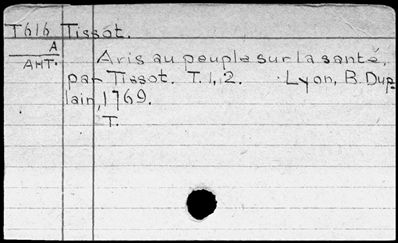 T616 Tissot.
A
AHT. Avis au peuple sur la santé,
par Tissot. T. 1, 2. Lyon, B. Dup-
lain, 1769.
T.